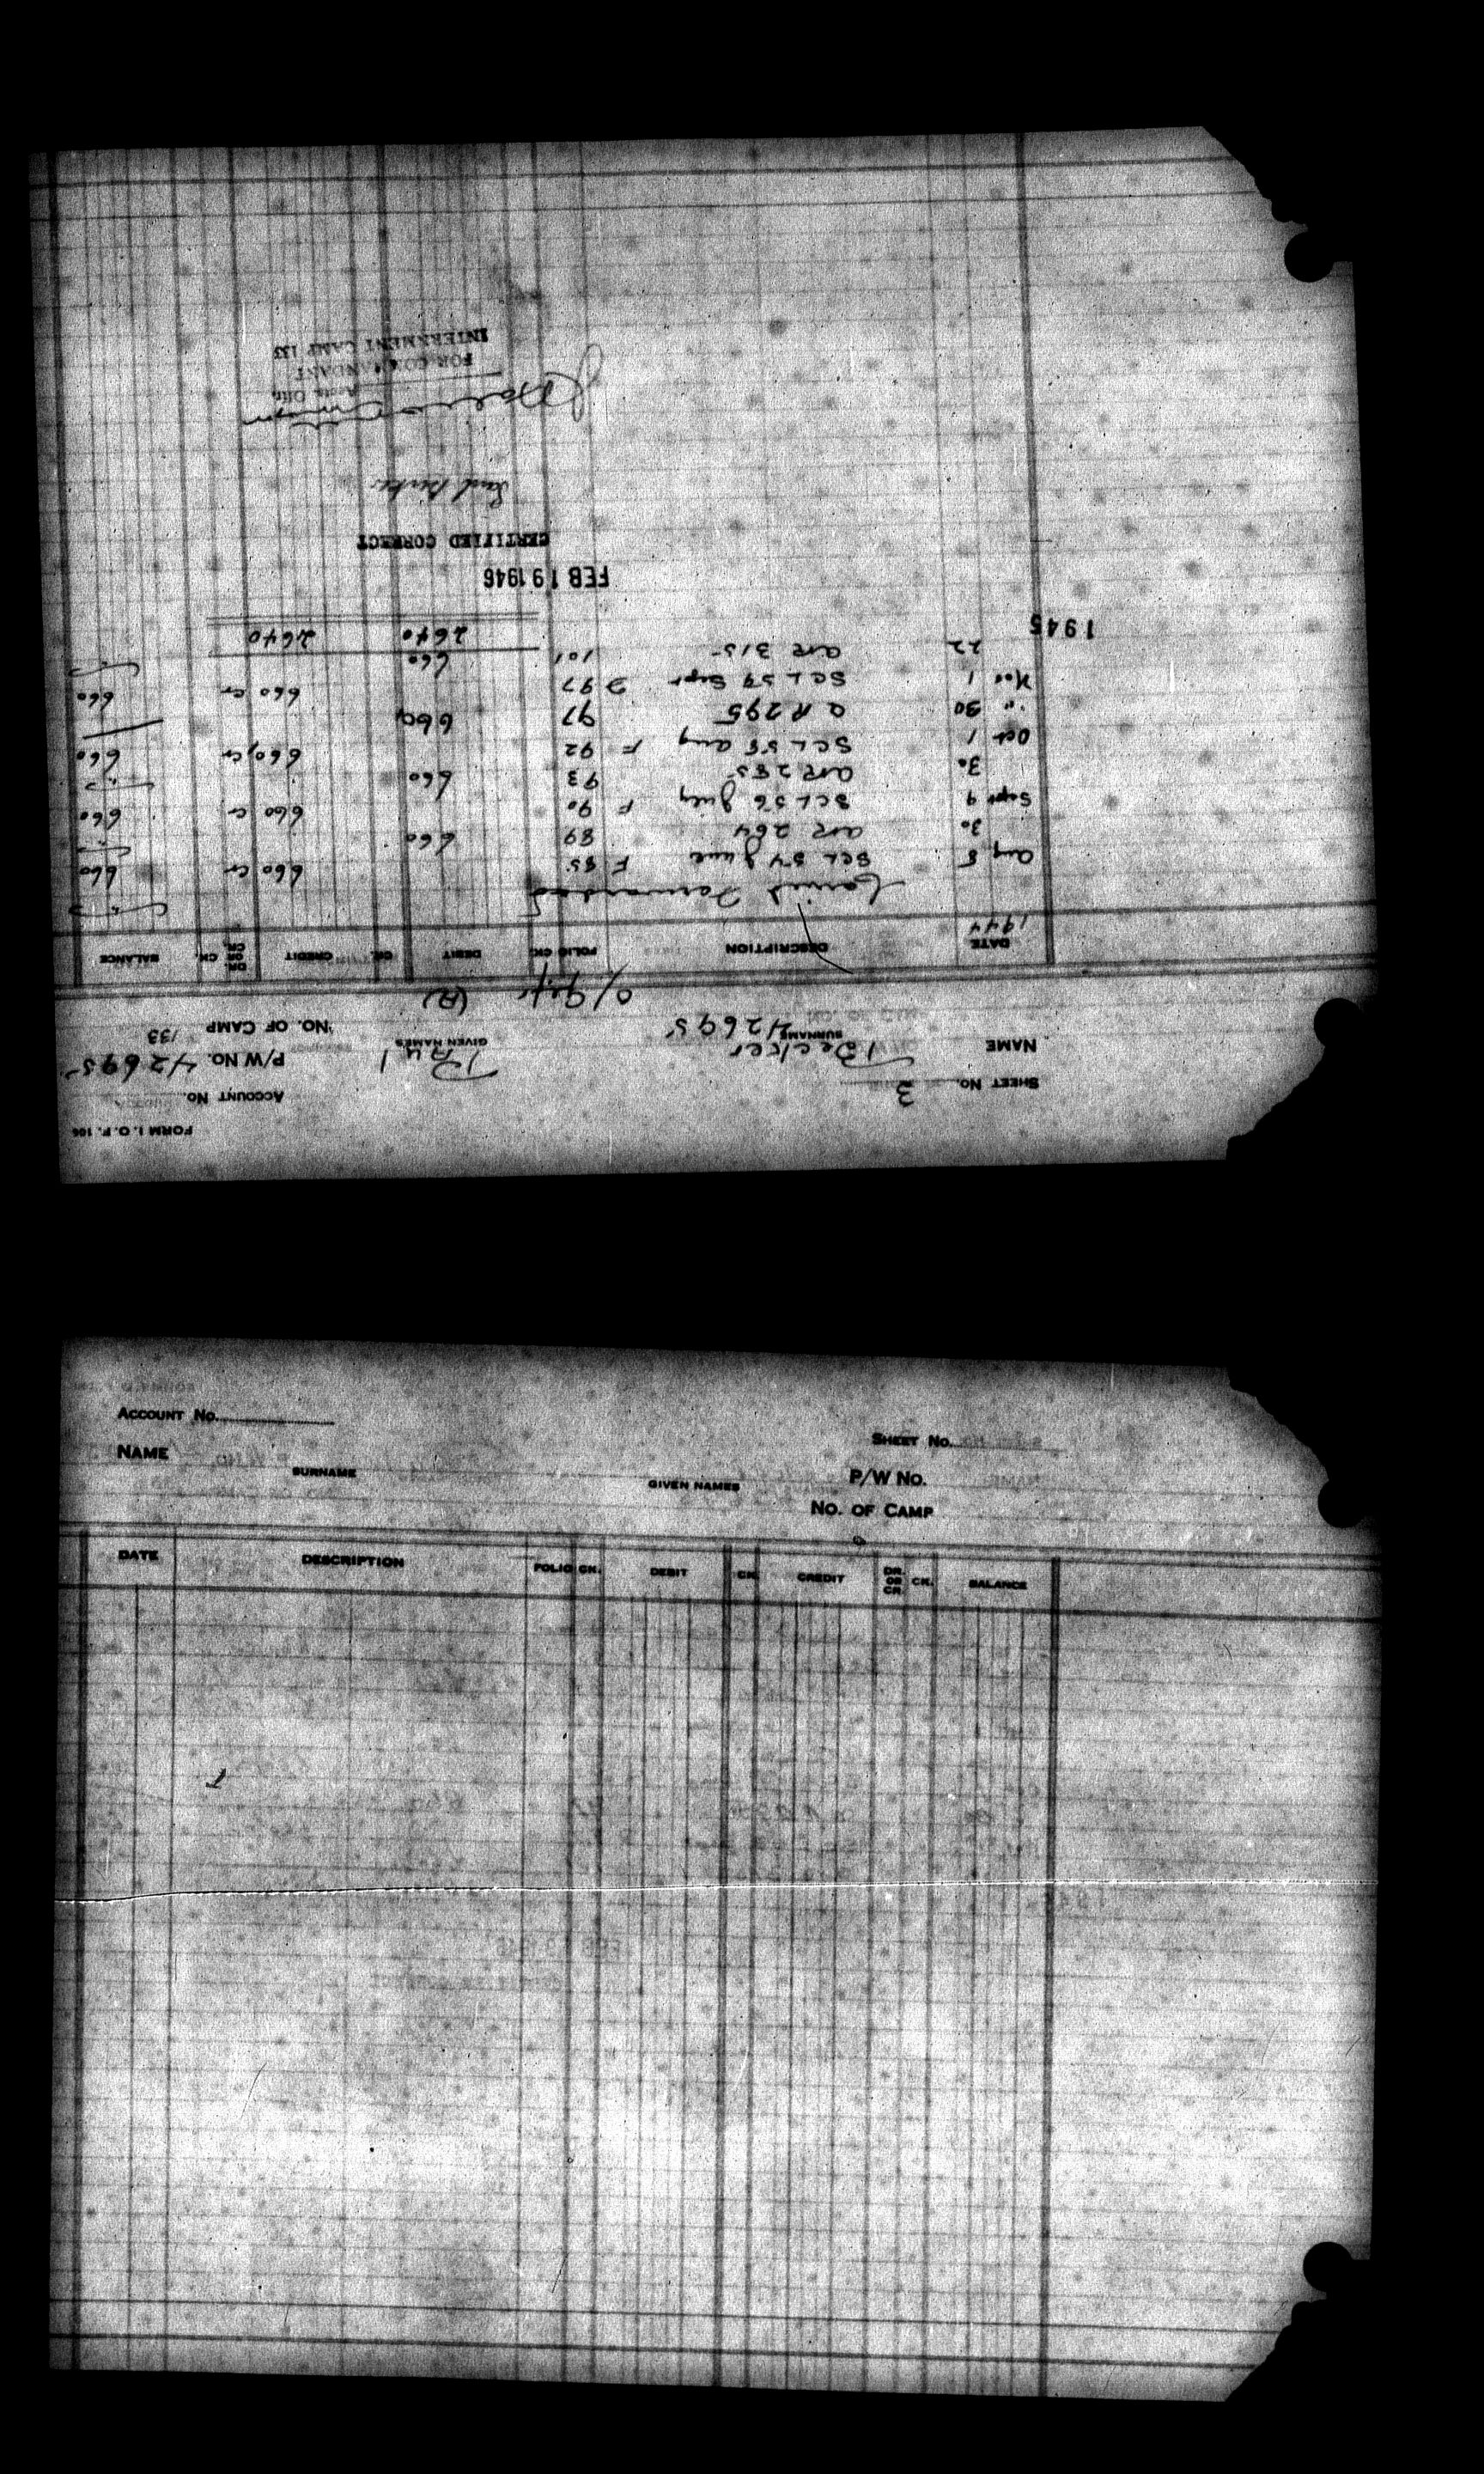 FORM I. O. F. 106
SHEET No. 3 ACCOUNT No.
NAME Becker Paul P/W No. 42695
SURNAME 42695 GIVEN NAMES NO. OF CAMP 133
(R)
DATE DESCRIPTION FOLIO CK. DEBIT CK. CREDIT DR. OR CR. CK. BALANCE
1944 Carried Forward
Aug 8 SCL 54 June F 85 660 Cr 660
30 AR 264 89 660
Sept 9 SCL 56 July F 90 660 Cr 660
30 AR 285 93 660
Oct 1 SCL 58 Aug F 92 660 Cr 660
" 30 AR 295 97 660
Nov 1 SCL 59 Sept 97 660 Cr 660
22 AR 315 101 660
1945 2640 2640
FEB 19 1946
CERTIFIED CORRECT
Paul Becker
Accts. Offr.
FOR COMMANDANT
INTERNMENT CAMP 133
ACCOUNT No. SHEET No.
NAME P/W No.
SURNAME GIVEN NAMES
NO. OF CAMP
DATE DESCRIPTION FOLIO CK. DEBIT CK. CREDIT DR. OR CR. CK. BALANCE